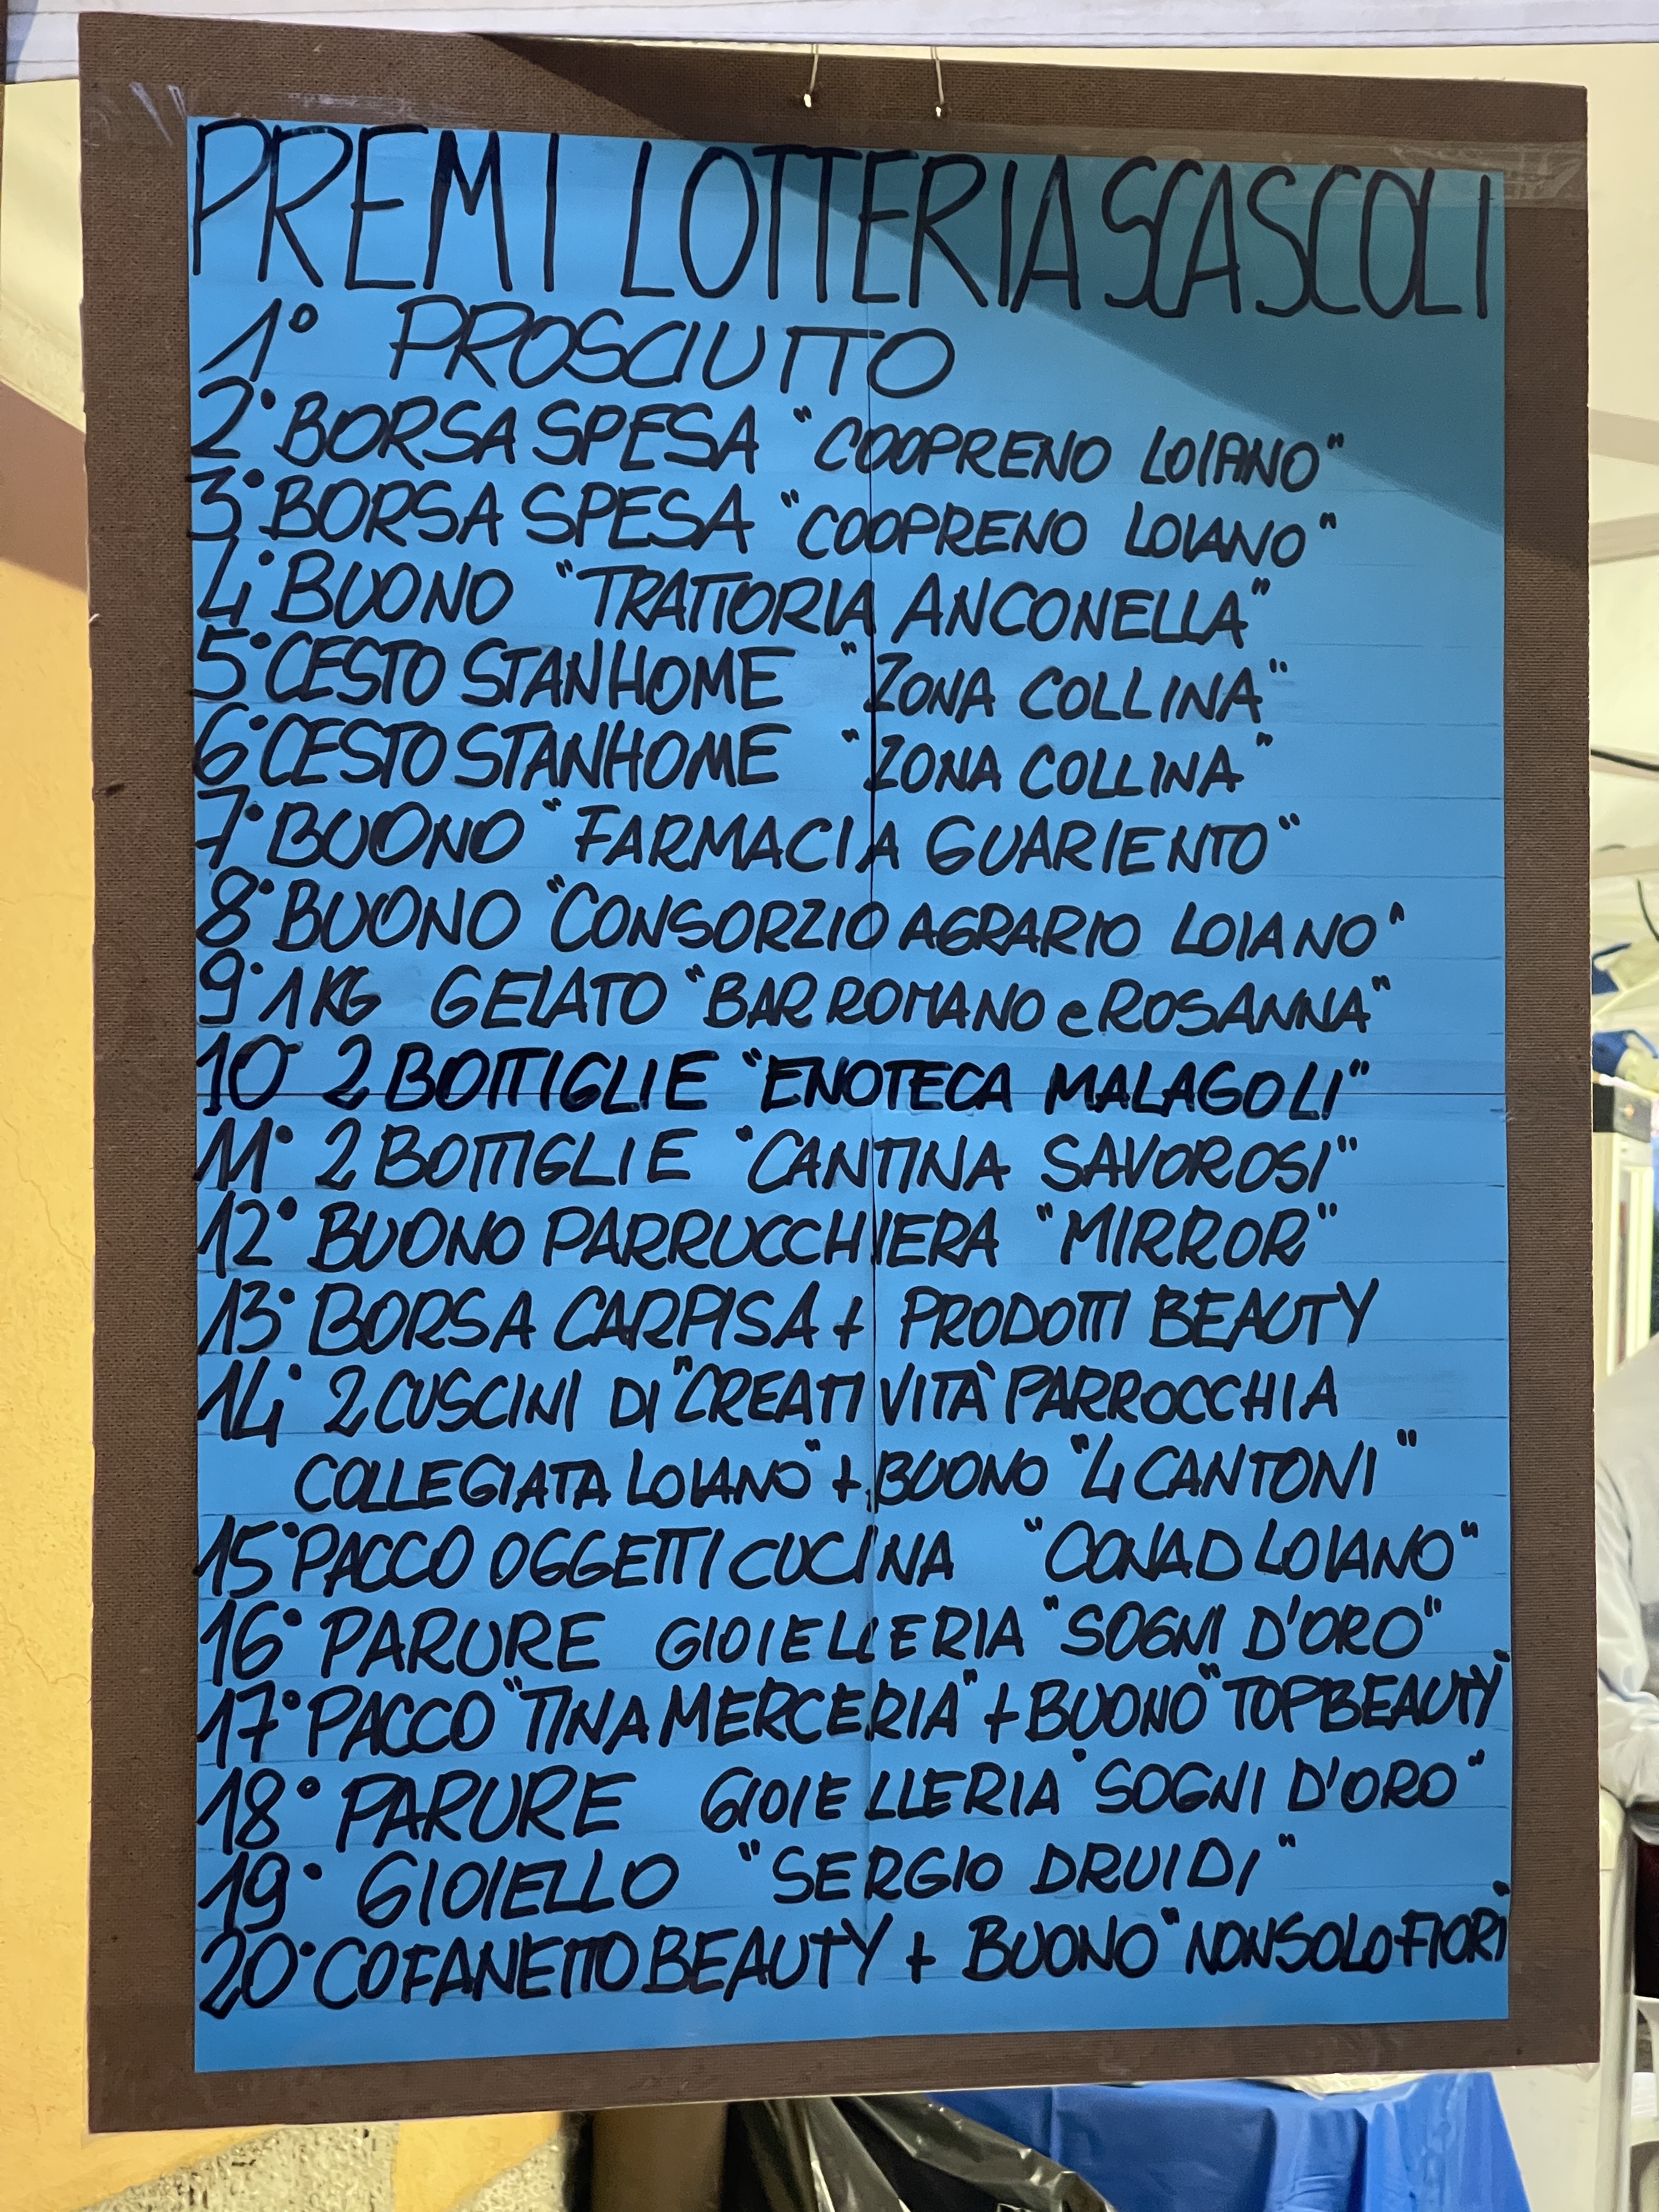 PREMI LOTTERIA SCASCOLI
1° PROSCIUTTO
2° BORSA SPESA "COOPRENO LOIANO"
3° BORSA SPESA "COOPRENO LOIANO"
4° BUONO "TRATTORIA ANCONELLA"
5° CESTO STANHOME "ZONA COLLINA"
6° CESTO STANHOME "ZONA COLLINA"
7° BUONO "FARMACIA GUARIENTO"
8° BUONO "CONSORZIO AGRARIO LOIANO"
9° 1 KG GELATO "BAR ROMANO e ROSANNA"
10° 2 BOTTIGLIE "ENOTECA MALAGOLI"
11° 2 BOTTIGLIE "CANTINA SAVOROSI"
12° BUONO PARRUCCHIERA "MIRROR"
13° BORSA CARPISA + PRODOTTI BEAUTY
14° 2 CUSCINI DI "CREATIVITÀ PARROCCHIA
COLLEGIATA LOIANO" + BUONO "4 CANTONI"
15° PACCO OGGETTI CUCINA "CONAD LOIANO"
16° PARURE GIOIELLERIA "SOGNI D'ORO"
17° PACCO "TINA MERCERIA" + BUONO "TOPBEAUTY"
18° PARURE GIOIELLERIA "SOGNI D'ORO"
19° GIOIELLO "SERGIO DRUIDI"
20° COFANETTO BEAUTY + BUONO "NONSOLOFIORI"